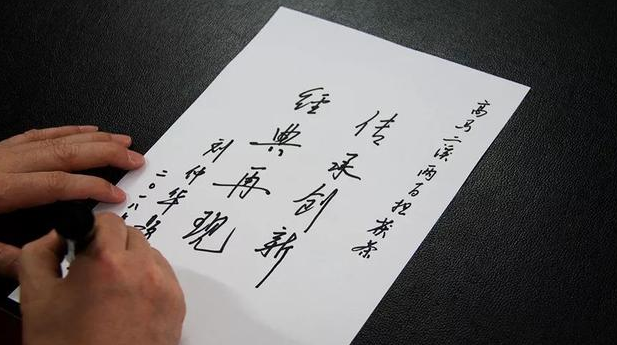 高马二溪两百担茯茶
传承创新
经典再现
刘仲华
二〇一八